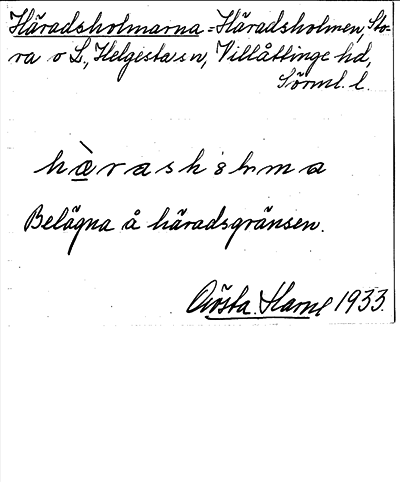 Häradsholmarna = Häradsholmen, Sto-
ra o L., Helgesta sn, Villåttinge hd,
Sörml. l.
hæ̀rashɷlma
Belägna å häradsgränsen.
Gösta Harne 1933.